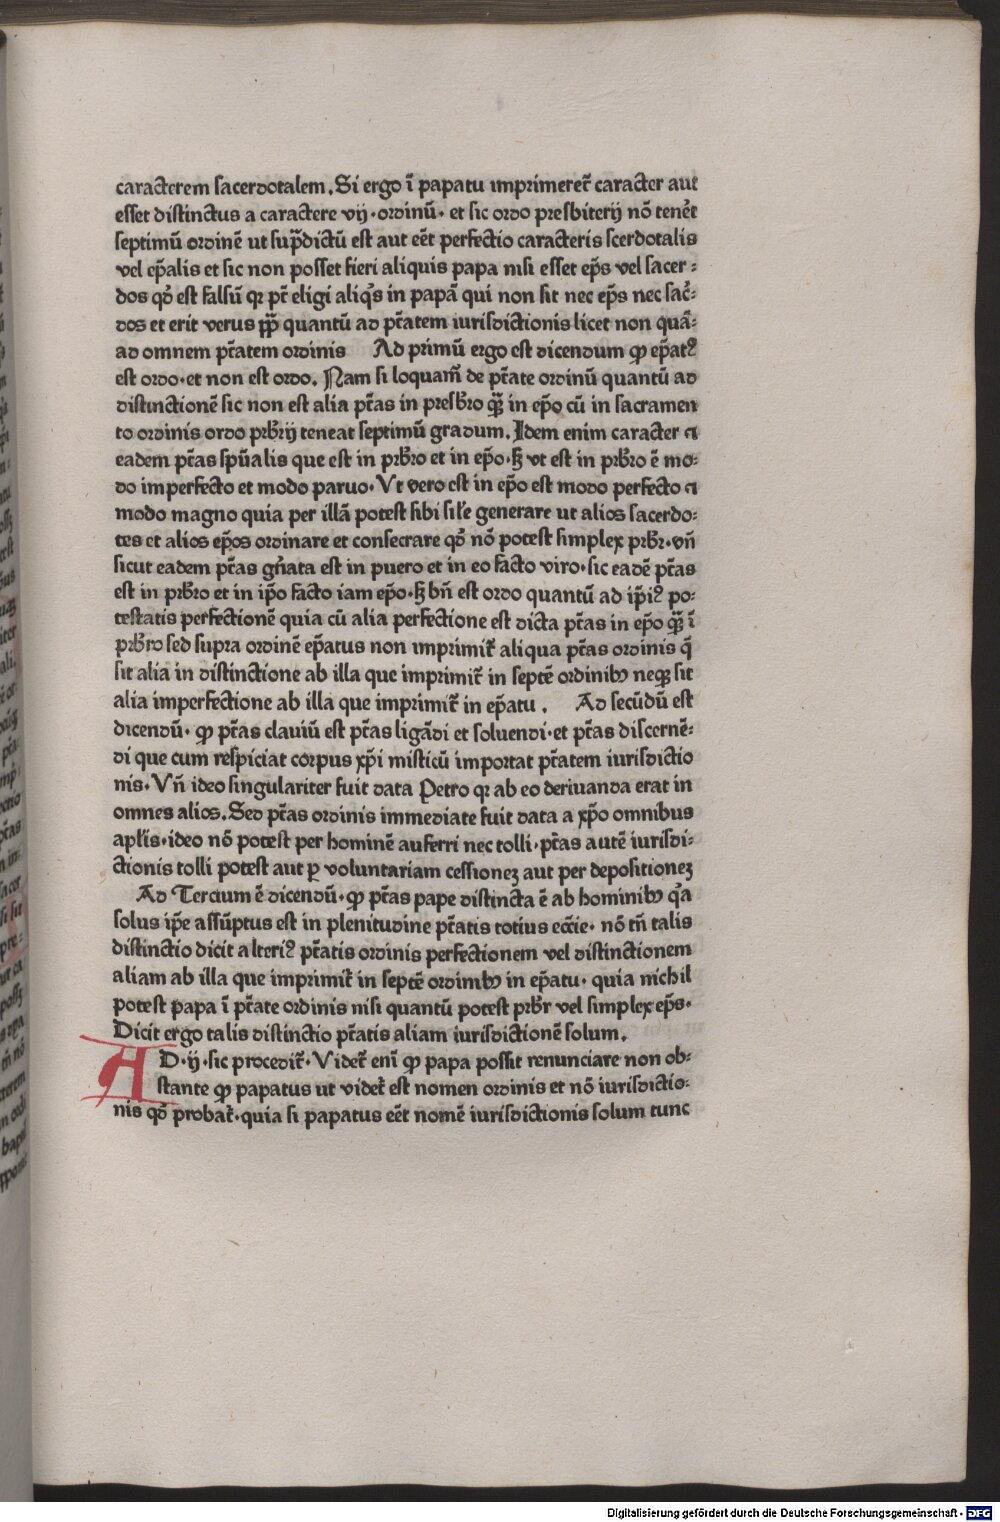 caracterem sacerdotalem. Si ergo ī papatu imprimeret̄ caracter aut
esset distinctus a caractere vij · ordinū · et sic ordo presbiterij nō tenēt
septimū ordinē ut sup̄dictū est aut eēt perfectio caracteris scerdotalis
vel ep̄alis et sic non posset fieri aliquis papa nisi esset ep̄s vel sacer⸗
dos qđ est falsū qꝛ pt̄ eligi aliq̄s in papā qui non sit nec ep̄s nec sac̄⸗
dos et erit verus pp̄ quantū ad pt̄atem iurisdictionis licet non quā⸗
ad omnem pt̄atem ordinis Ad primū ergo est dicendum ꝙ ep̄atꝰ
est ordo · et non est ordo. Nam si loquam̄ de pt̄ate ordinū quantū ad
distinctionē sic non est alia pt̄as in presbr̄o qꝫ̄ in ep̄o cū in sacramen
to ordinis ordo prbr̄ij teneat septimū gradum. Idem enim caracter ⁊
eadem pt̄as spūalis que est in prbr̄o et in ep̄o · sꝫ vt est in prbr̄o ē mo⸗
do imperfecto et modo paruo · Vt vero est in ep̄o est modo perfecto ⁊
modo magno quia per illā potest sibi sil̄e generare ut alios sacerdo⸗
tes et alios ep̄os ordinare et consecrare qđ nō potest simplex prbr̄ · vn̄
sicut eadem pt̄as gn̄ata est in puero et in eo facto viro · sic eadē pt̄as
est in prbr̄o et in ip̄o facto iam ep̄o · sꝫ bn̄ est ordo quantū ad ip̄iꝰ po⸗
testatis perfectionē quia cū alia perfectione est dicta pt̄as in ep̄o qꝫ̄ ī
prbr̄o sed supra ordinē ep̄atus non imprimit̄ aliqua pt̄as ordinis q̄
sit alia in distinctione ab illa que imprimit̄ in septē ordinibꝰ neqꝫ sit
alia imperfectione ab illa que imprimit̄ in ep̄atu . Ad secūdū est
dicendū · ꝙ pt̄as clauiū est pt̄as ligādi et soluendi · et pt̄as discernē⸗
di que cum respiciat corpus xp̄i misticū importat pt̄atem iurisdictio
nis · Vn̄ ideo singulariter fuit data Petro qꝛ ab eo deriuanda erat in
omnes alios. Sed pt̄as ordinis immediate fuit data a xp̄o omnibus
apl̄is · ideo nō potest per hominē auferri nec tolli · pt̄as autē iurisdi⸗
ctionis tolli potest aut ꝑ voluntariam cessionez aut per depositionez
Ad Tercium ē dicendū · ꝙ pt̄as pape distincta ē ab hominibꝰ q̄a
solus ip̄e assūptus est in plenitudine pt̄atis totius ecc̄ie · nō tn̄ talis
distinctio dicit alteriꝰ pt̄atis ordinis perfectionem vel distinctionem
aliam ab illa que imprimit̄ in septē ordinibꝰ in ep̄atu · quia nichil
potest papa ī pt̄ate ordinis nisi quantū potest prbr̄ vel simplex ep̄s ·
Dicit ergo talis distinctio pt̄atis aliam iurisdictionē solum.
AD · ij · sic procedit̄ · Videt̄ enī ꝙ papa possit renunciare non ob⸗
stante ꝙ papatus ut videt̄ est nomen ordinis et nō iurisdictio⸗
nis qđ probat̄ · quia si papatus eēt nomē iurisdictionis solum tunc
Digitalisierung gefördert durch die Deutsche Forschungsgemeinschaft - DFG